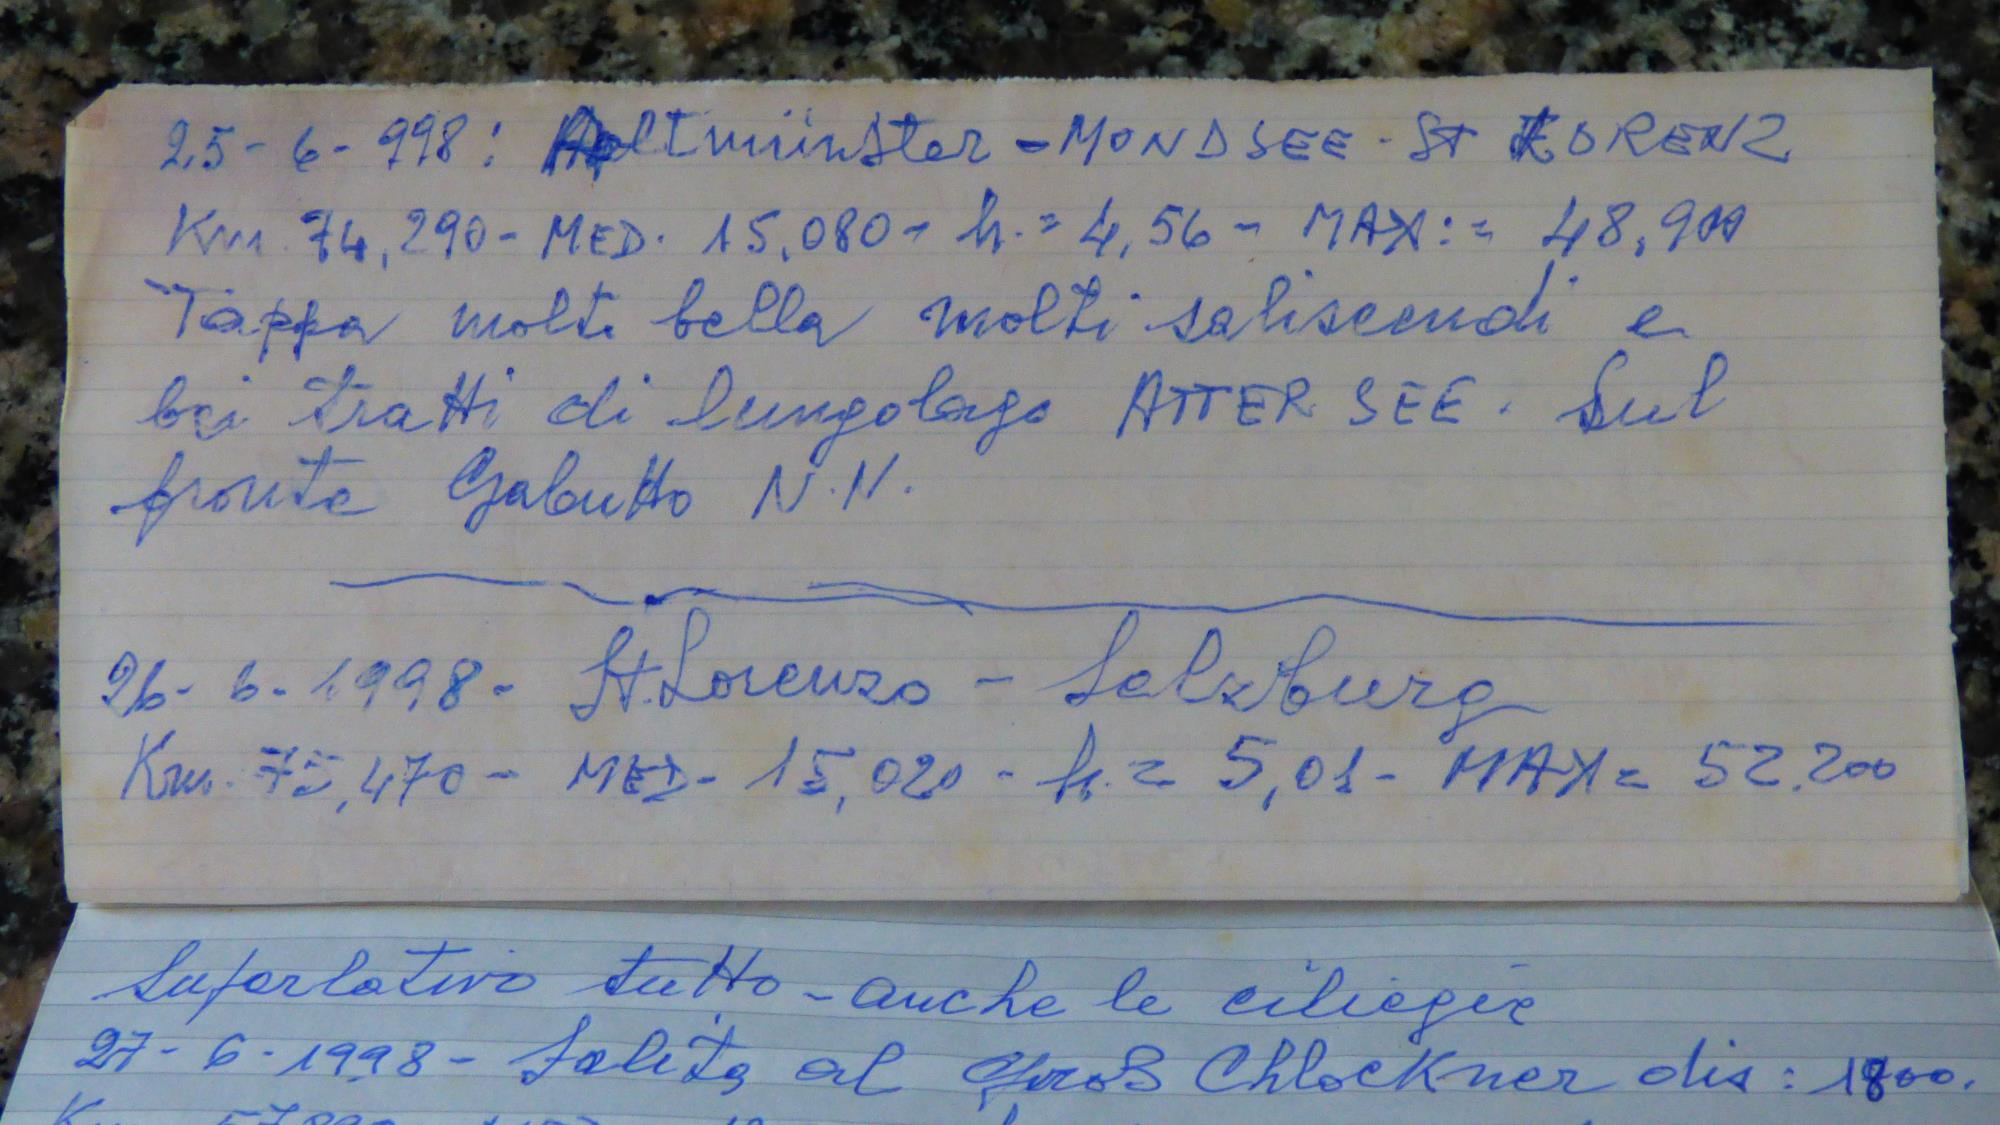 25-6-998: Altmünster - MONDSEE - St LORENZ
Km. 74,290 - MED. 15,080 - h. = 4,56 - MAX: = 48,900
Tappa molto bella molti saliscendi e
bei tratti di lungolago ATTER SEE. Sul
fronte Gabutto N.N.
26-6-1998- St. Lorenzo - Salzburg
Km. 75,470 - MED- 15,020 - h. = 5,01 - MAX = 52.200
Superlativo tutto - anche le ciliegie
27-6-1998- Salita al Groß Chlockner dis: 1800.
Km